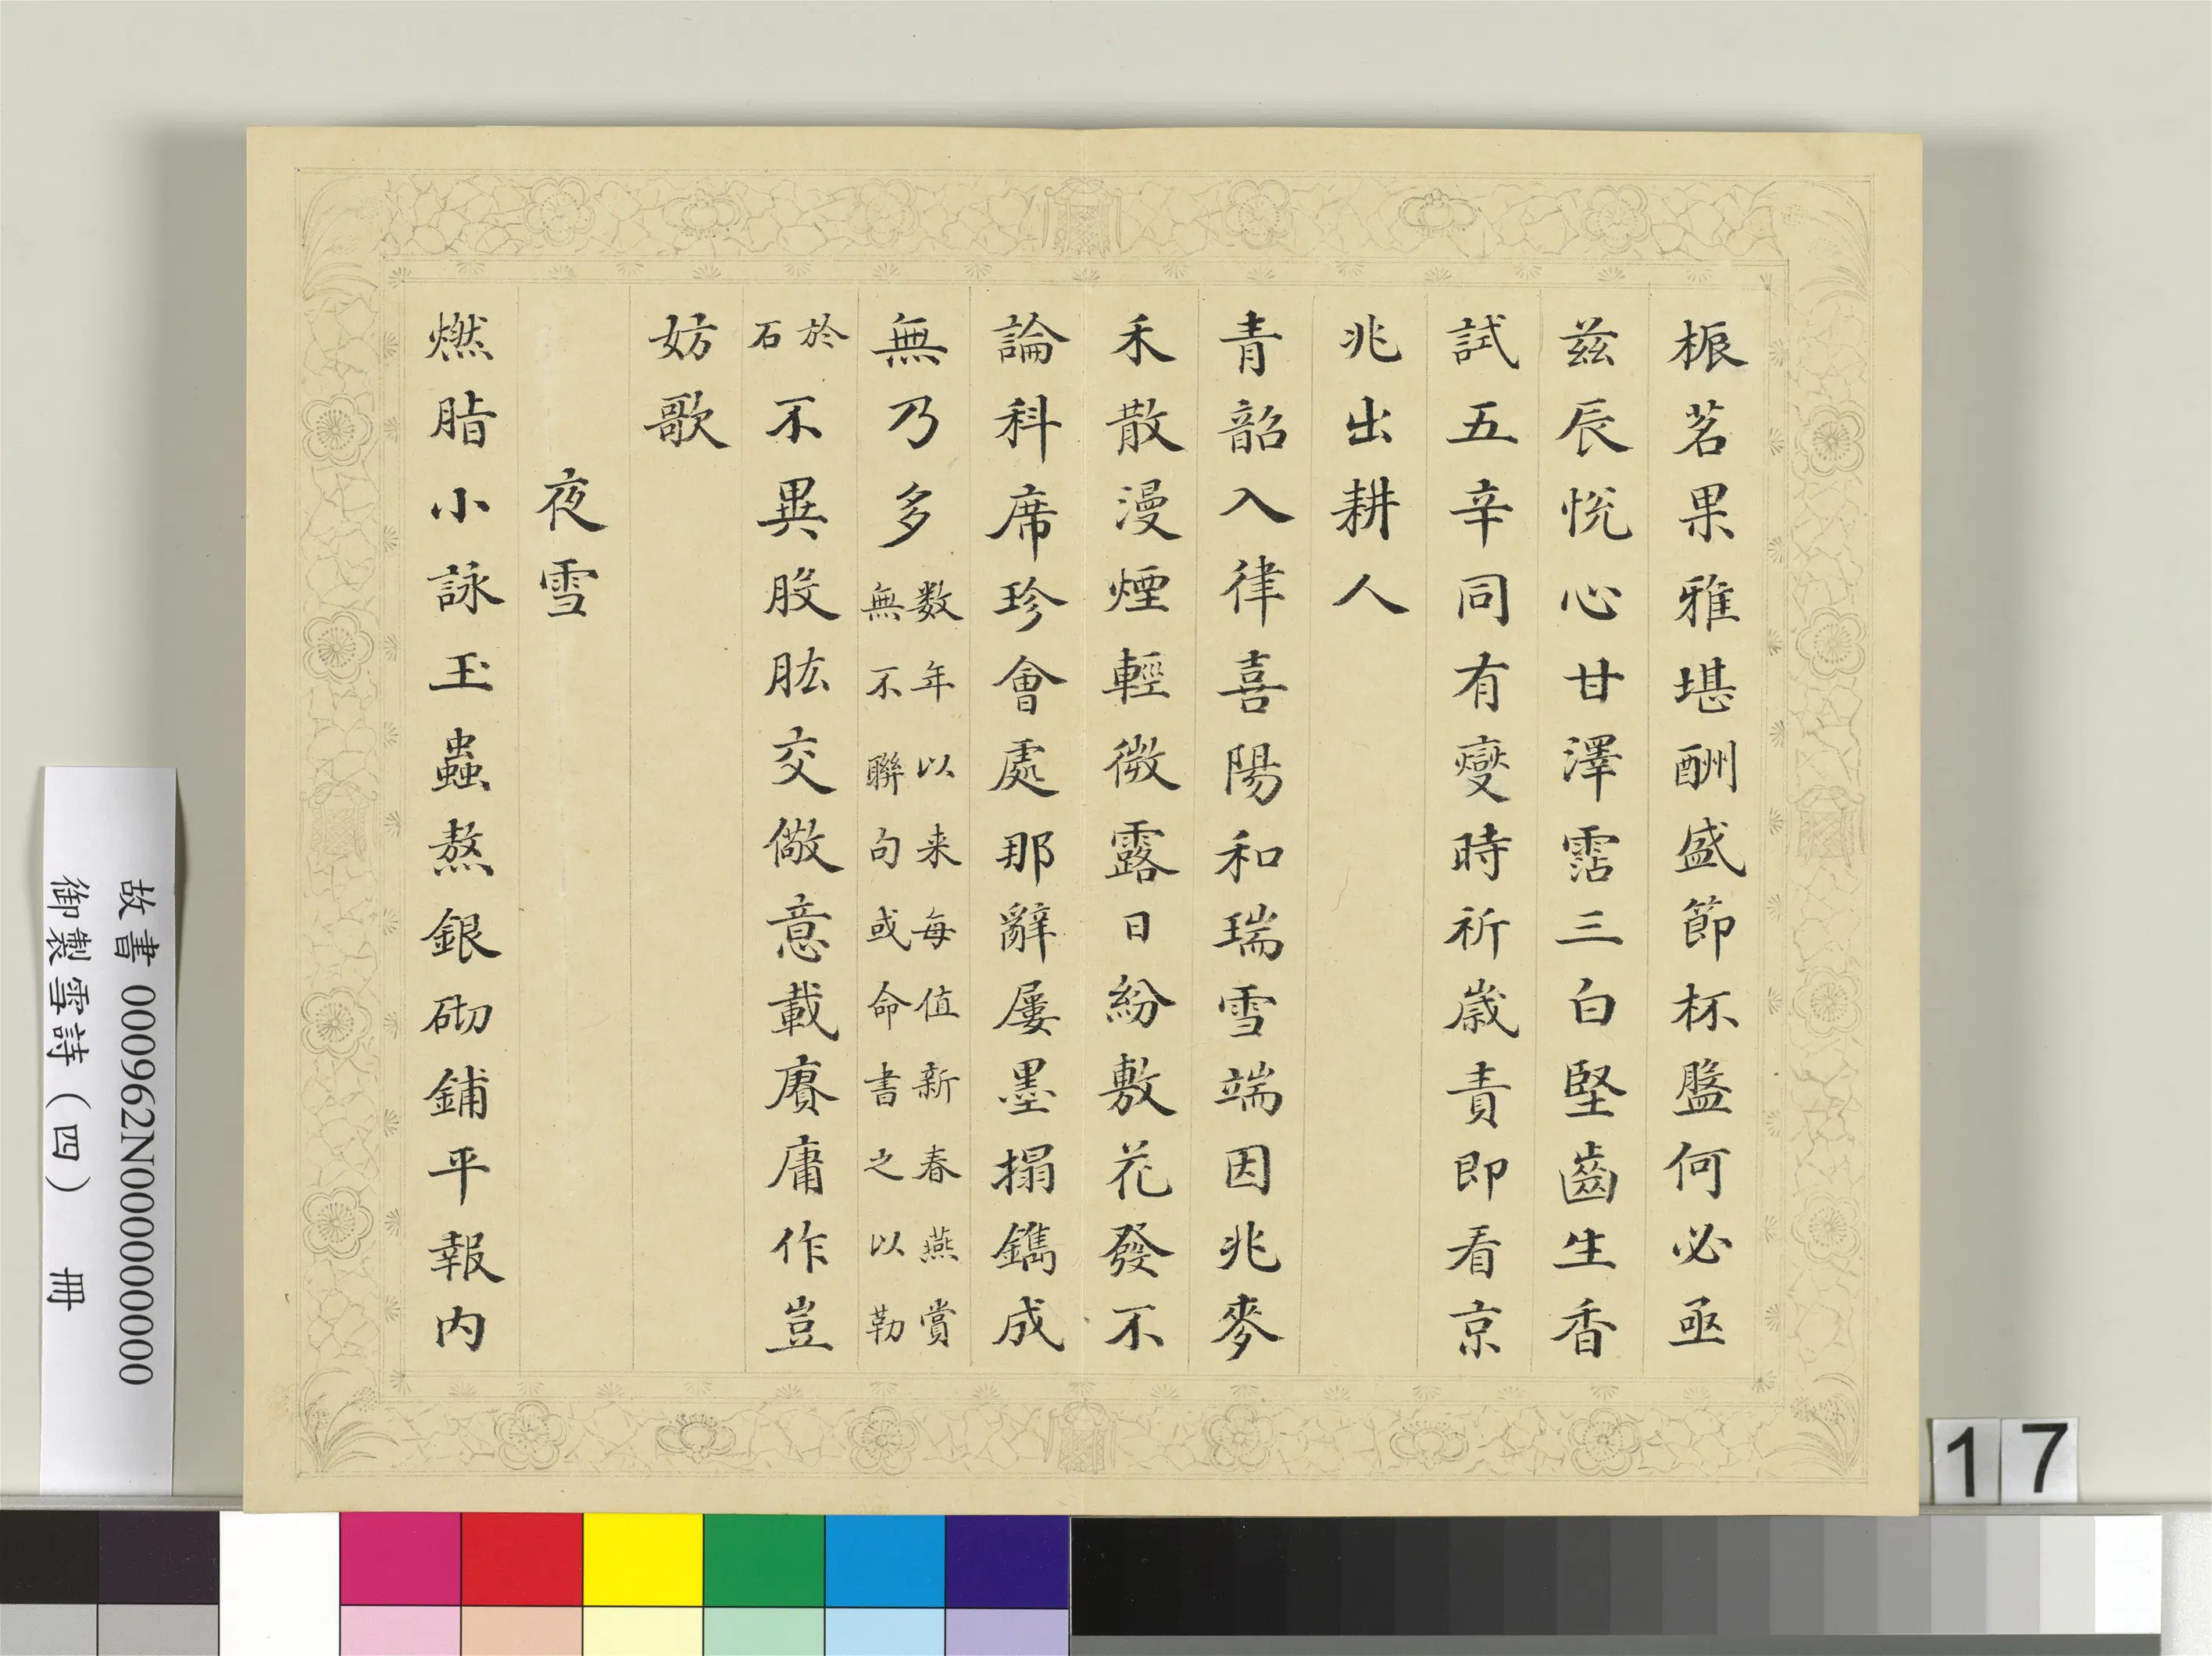 桭茗果雅堪酬盛節杯盤何必亟
茲辰悅心甘澤霑三白堅齒生香
試五辛同有變時祈歲責即看京
兆出耕人
青韶入律喜陽和瑞雪端因兆麥
禾散漫煙輕微露日紛敷花發不
論科席珍會處那辭屢墨搨鐫成
無乃多
数年以来每值新春燕賞
無不聯句或命書之以勒
於
石
不異股肱交儆意載賡庸作豈
妨歌
夜雪
燃脂小詠玉蟲熬銀砌鋪平報內
故書 000962N000000000
御製雪詩(四) 冊
17